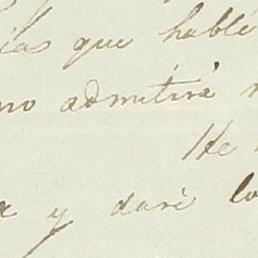 que hablé
no admitirá
He
y daré